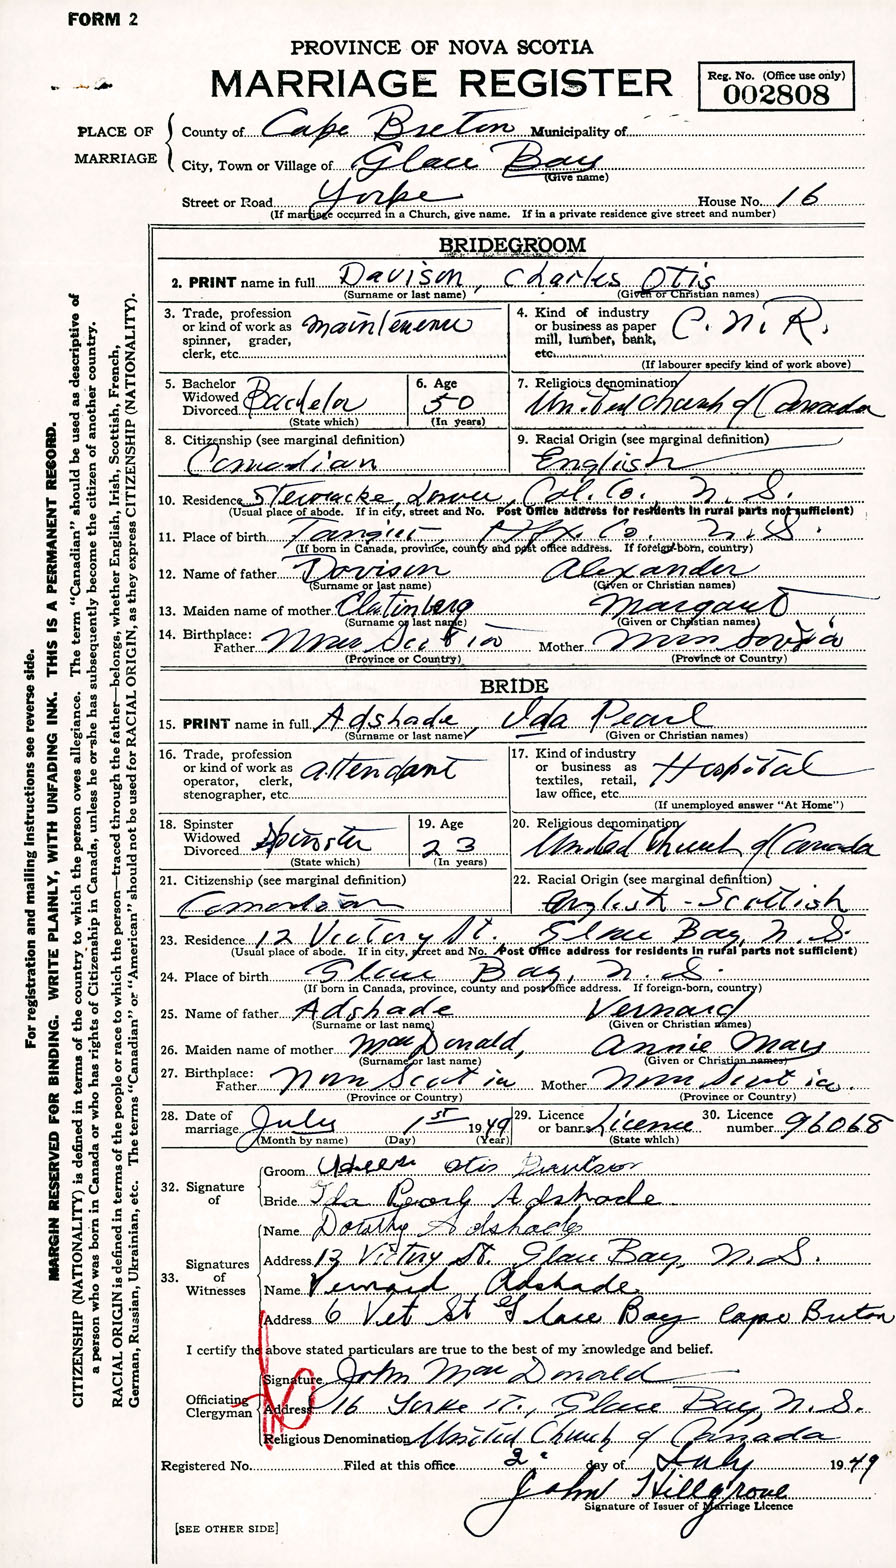 FORM 2
PROVINCE OF NOVA SCOTIA
MARRIAGE REGISTER
Reg. No. (Office use only)
002808
PLACE OF MARRIAGE
County of Cape Breton Municipality of
City, Town or Village of Glace Bay
(Give name)
Street or Road Yorke House No. 16
(If marriage occurred in a Church, give name. If in a private residence give street and number)
BRIDEGROOM
2. PRINT name in full Davison, Charles Otis
(Surname or last name) (Given or Christian names)
3. Trade, profession or kind of work as spinner, grader, clerk, etc. maintenence
4. Kind of industry or business as paper mill, lumber, bank, etc. C.N.R.
(If labourer specify kind of work above)
5. Bachelor Widowed Divorced Bachelor
(State which)
6. Age 50
(In years)
7. Religious denomination United Church of Canada
8. Citizenship (see marginal definition) Canadian
9. Racial Origin (see marginal definition) English
10. Residence Stewiacke, Lower, Col. Co., N.S.
(Usual place of abode. If in city, street and No. Post Office address for residents in rural parts not sufficient)
11. Place of birth Tangier, Hfx. Co. N.S.
(If born in Canada, province, county and post office address. If foreign-born, country)
12. Name of father Davison Alexander
(Surname or last name) (Given or Christian names)
13. Maiden name of mother Clattenberg Margaret
(Surname or last name) (Given or Christian names)
14. Birthplace: Father Nova Scotia Mother Nova Scotia
(Province or Country) (Province or Country)
BRIDE
15. PRINT name in full Adshade, Ida Pearl
(Surname or last name) (Given or Christian names)
16. Trade, profession or kind of work as operator, clerk, stenographer, etc. attendant
17. Kind of industry or business as textiles, retail, law office, etc. Hospital
(If unemployed answer "At Home")
18. Spinster Widowed Divorced Spinster
(State which)
19. Age 23
(In years)
20. Religious denomination United Church of Canada
21. Citizenship (see marginal definition) Canadian
22. Racial Origin (see marginal definition) English-Scottish
23. Residence 12 Victory St. Glace Bay, N.S.
(Usual place of abode. If in city, street and No. Post Office address for residents in rural parts not sufficient)
24. Place of birth Glace Bay, N.S.
(If born in Canada, province, county and post office address. If foreign-born, country)
25. Name of father Adshade Vernard
(Surname or last name) (Given or Christian names)
26. Maiden name of mother MacDonald, Annie May
(Surname or last name) (Given or Christian names)
27. Birthplace: Father Nova Scotia Mother Nova Scotia.
(Province or Country) (Province or Country)
28. Date of marriage July 1st 1949
(Month by name) (Day) (Year)
29. Licence or banns Licence
(State which)
30. Licence number 96068
32. Signature of
Groom Otis Davison
Bride Ida Pearl Adshade
33. Signatures of Witnesses
Name Dorothy Adshade
Address 12 Victory St. Glace Bay, N.S.
Name Vernard Adshade
Address 6 Vet St Glace Bay Cape Breton
I certify the above stated particulars are true to the best of my knowledge and belief.
Officiating Clergyman
Signature John MacDonald
Address 16 Yorke St., Glace Bay N.S.
Religious Denomination United Church of Canada
Registered No. Filed at this office 2 day of July 1949
John Hillgrove
Signature of Issuer of Marriage Licence
[SEE OTHER SIDE]
For registration and mailing instructions see reverse side.
MARGIN RESERVED FOR BINDING. WRITE PLAINLY, WITH UNFADING INK. THIS IS A PERMANENT RECORD.
CITIZENSHIP (NATIONALITY) is defined in terms of the country to which the person owes allegiance. The term "Canadian" should be used as descriptive of
a person who was born in Canada or who has rights of Citizenship in Canada, unless he or she has subsequently become the citizen of another country.
RACIAL ORIGIN is defined in terms of the people or race to which the person—traced through the father—belongs, whether English, Irish, Scottish, French,
German, Russian, Ukrainian, etc. The terms "Canadian" or "American" should not be used for RACIAL ORIGIN, as they express CITIZENSHIP (NATIONALITY).